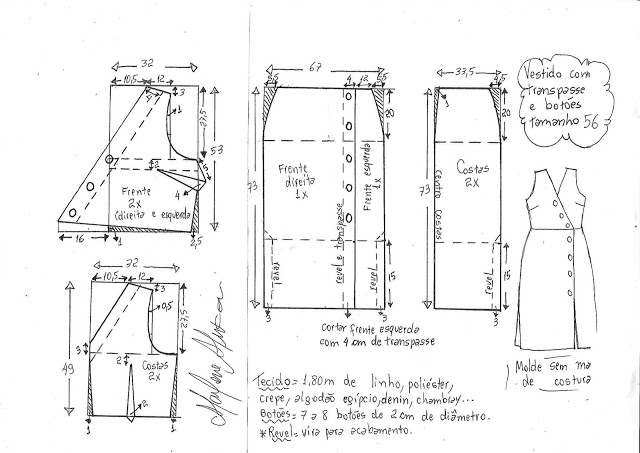 32
10,5
12
3
4
1
27,5
53
2
5
4
Frente
2x
(direita e esquerda
16
1
2,5
32
10,5
12
3
0,5
27,5
3
49
2
Costas
2x
2
1
1
67
5,5
4
12
5,5
20
73
Frente
direita
1x
Frente esquerda
1x
revel e transpasse
revel
revel
15
3
3
Cortar frente esquerda
com 4 cm de transpasse
33,5
4,5
1
20
Costas
2x
73
centro costas
revel
15
3
Vestido com
transpasse
e botões
tamanho 56
Molde sem ma
de costura
Tecido = 1,80m de linho, poliéster,
crepe, algodão egípcio, denin, chambray...
Botões = 7 a 8 botões de 2 cm de diâmetro.
* Revel = vira para acabamento.